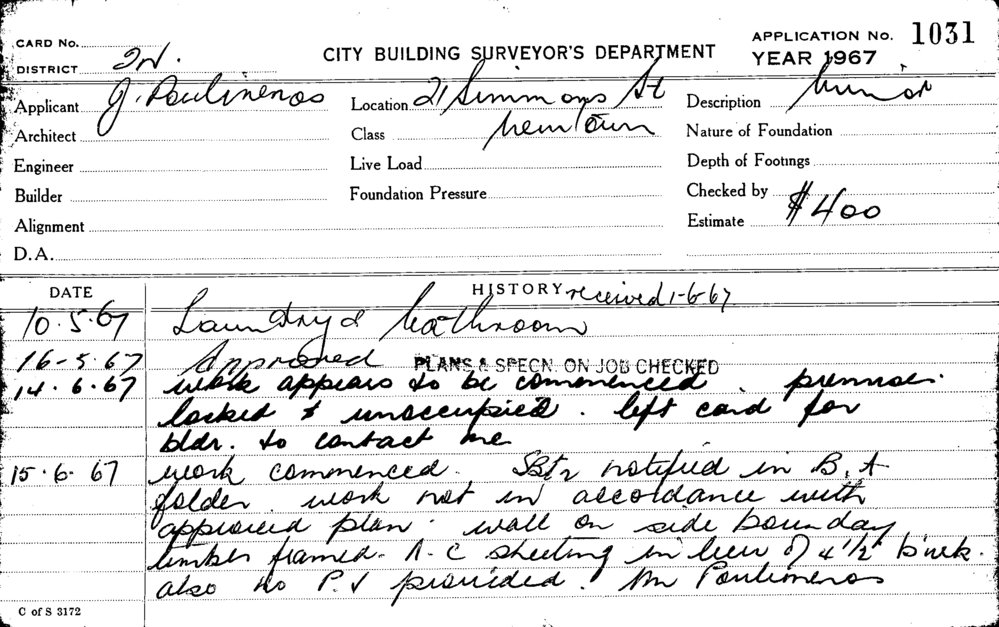 CARD No.
CITY BUILDING SURVEYOR'S DEPARTMENT
APPLICATION No. 1031
DISTRICT
YEAR 1967
Applicant J. Poulimenos Location 21 Simmons St Description Minor
Architect Class Newtown Nature of Foundation
Engineer Live Load Depth of Footings
Builder Foundation Pressure Checked by
Alignment Estimate $400
D.A.
DATE HISTORY received 1-6-67
10.5.67 Laundry & bathroom
16-5-67 Approved PLANS & SPECN. ON JOB CHECKED
14.6.67 work appears to be commenced. premises
locked & unoccupied. left card for
bldr. to contact me
15.6.67 work commenced. notified in B.A
folder work not in accordance with
approved plan. wall on side bounday
timber framed. A-C sheeting in lieu of 4 1/2" brick.
also no P.V provided. Mr Poulimenos
C of S 3172